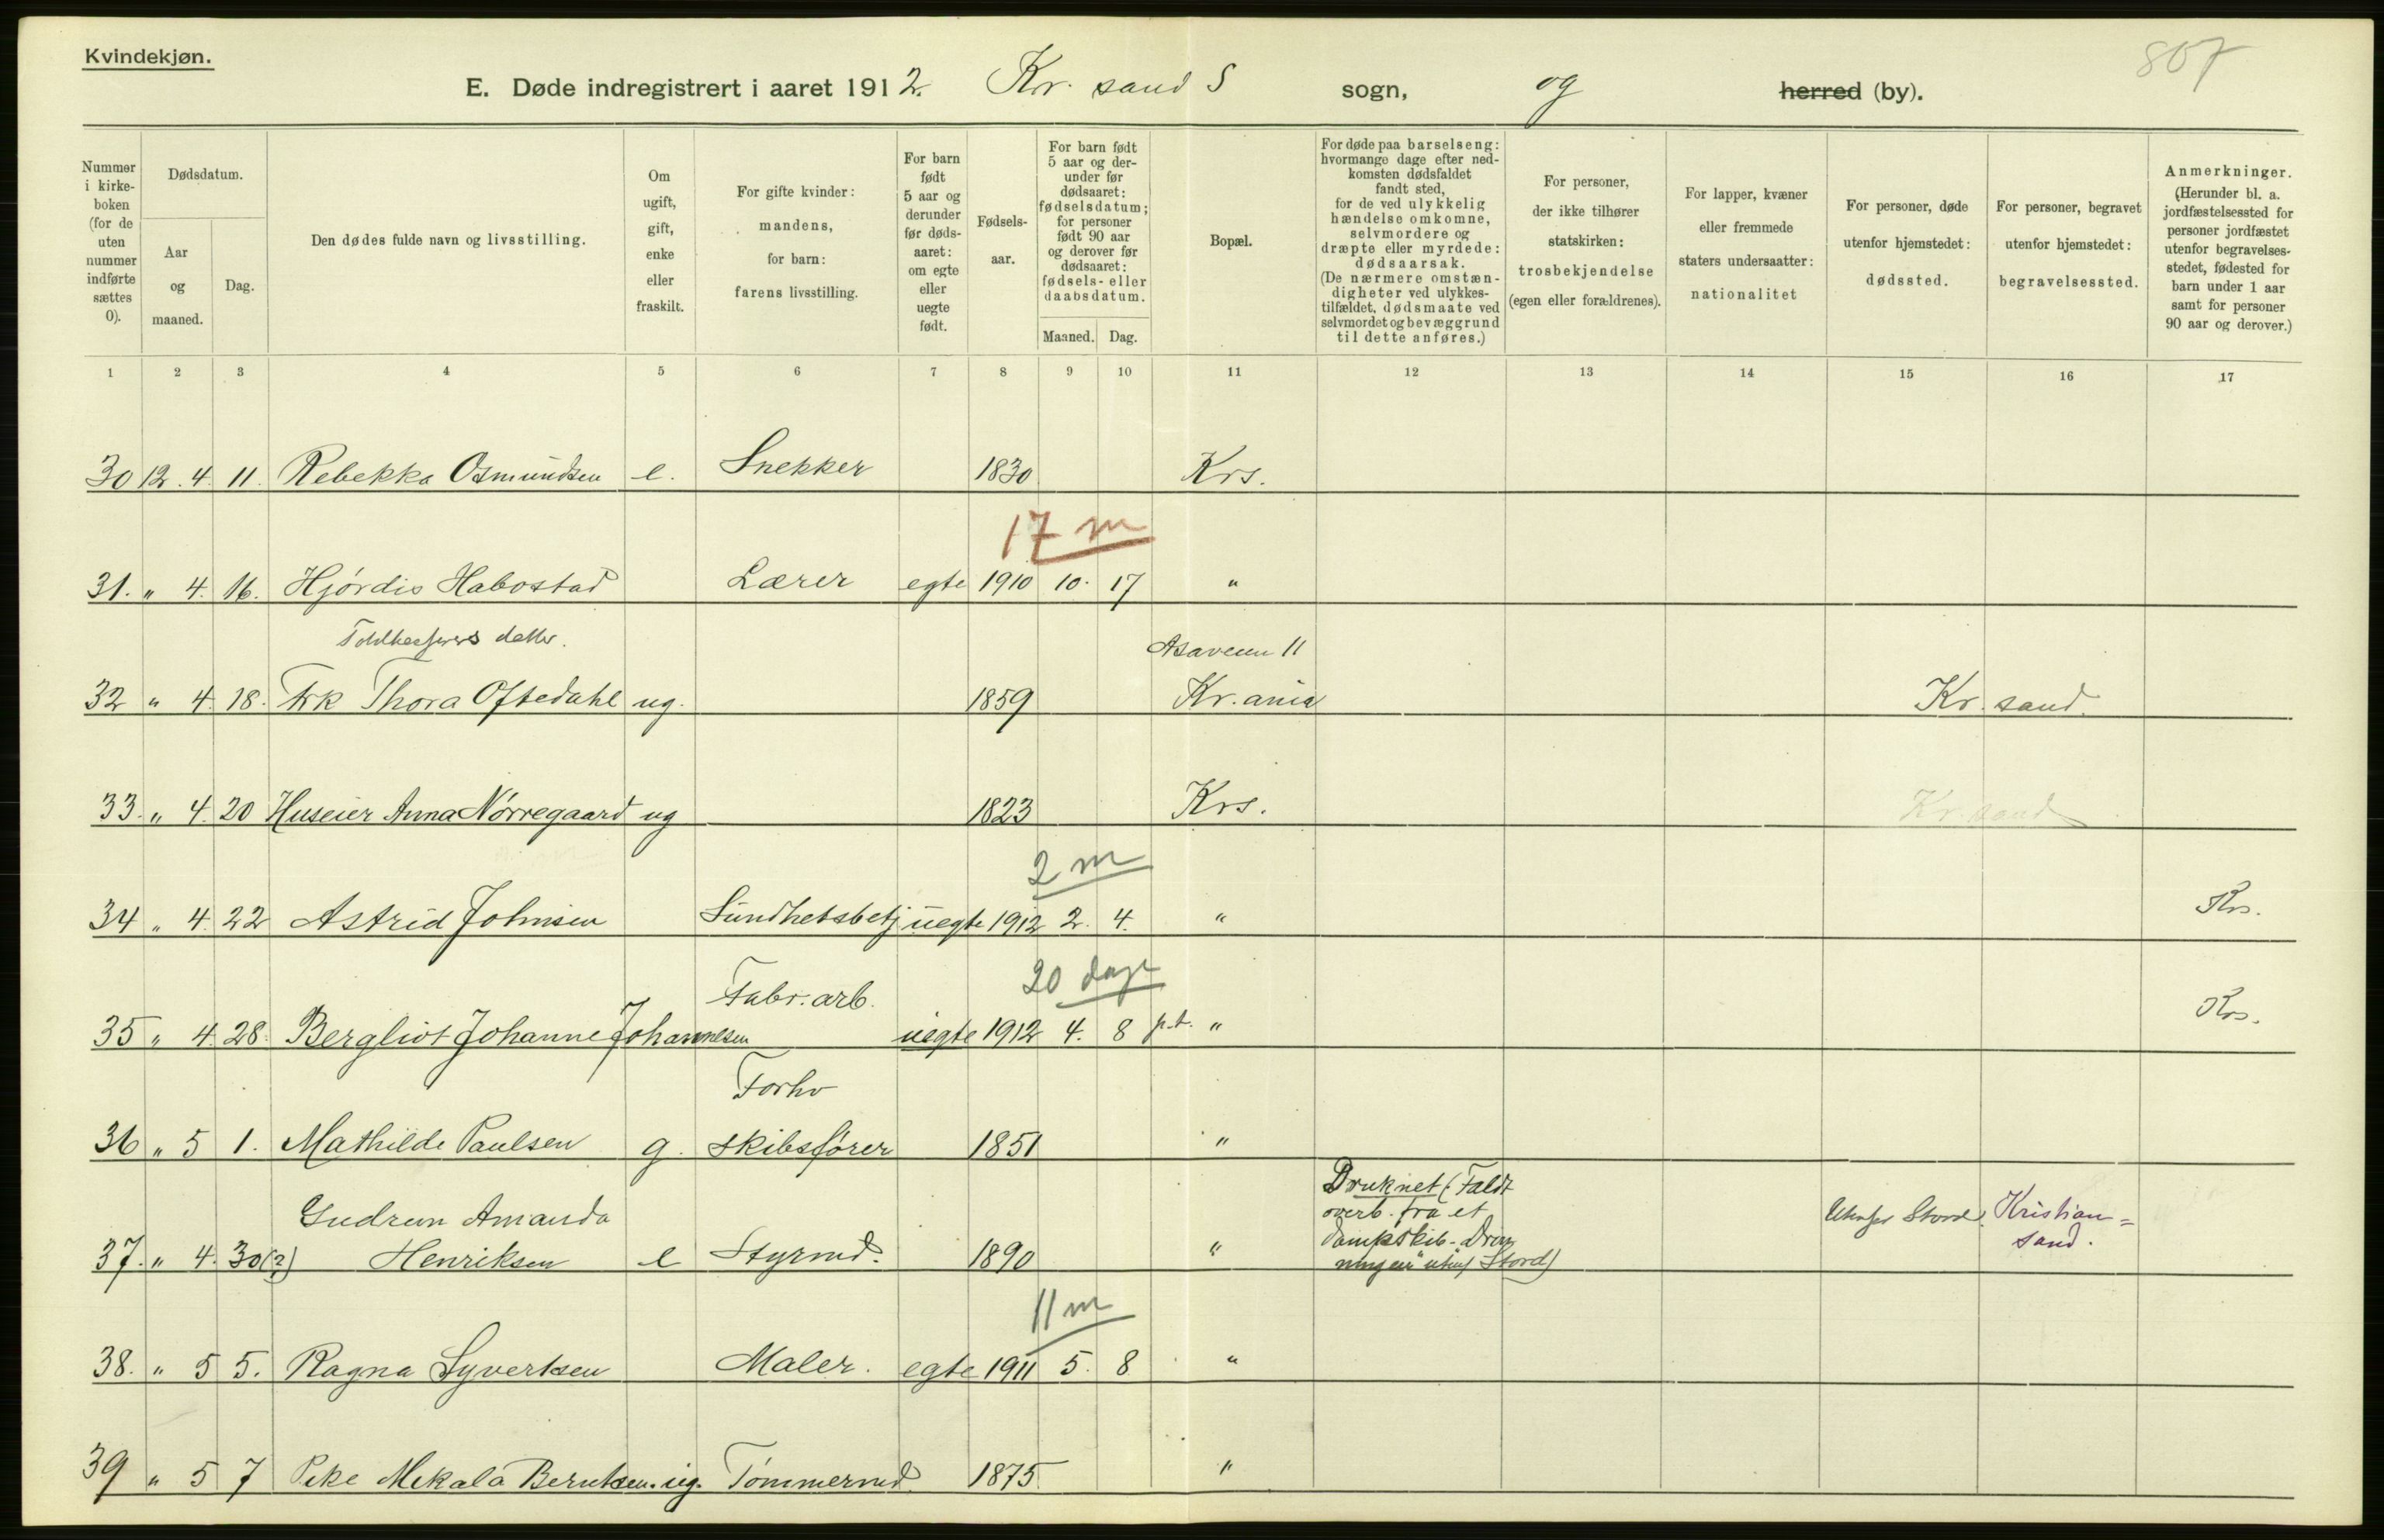 Kvindekjøn.
807
E. Døde indregistrert i aaret 1912. Kr. sand S sogn, og herred (by).
Nummer i kirke-boken (for de uten nummer indførte sættes 0).
Dødsdatum.
Aar og maaned.
Dag.
Den dødes fulde navn og livsstilling.
Om ugift, gift, enke eller fraskilt.
For gifte kvinder: mandens, for barn: farens livsstilling.
For barn født 5 aar og derunder før døds-aaret: om egte eller uegte født.
Fødsels-aar.
For barn født 5 aar og der-under før dødsaaret: fødselsdatum; for personer født 90 aar og derover før dødsaaret: fødsels- eller daabsdatum.
Maaned. Dag.
Bopæl.
For døde paa barselseng: hvormange dage efter ned-komsten dødsfaldet fandt sted, for de ved ulykkelig hændelse omkomne, selvmordere og dræpte eller myrdede: dødsaarsak. (De nærmere omstæn-digheter ved ulykkes-tilfældet, dødsmaate ved selvmordet og bevæggrund til dette anføres.)
For personer, der ikke tilhører statskirken: trosbekjendelse (egen eller forældrenes).
For lapper, kvæner eller fremmede staters undersaatter: nationalitet
For personer, døde utenfor hjemstedet: dødssted.
For personer, begravet utenfor hjemstedet: begravelsessted.
Anmerkninger. (Herunder bl. a. jordfæstelsessted for personer jordfæstet utenfor begravelses-stedet, fødested for barn under 1 aar samt for personer 90 aar og derover.)
1 2 3 4 5 6 7 8 9 10 11 12 13 14 15 16 17
30 12. 4. 11. Rebekka Osmundsen e. Snekker 1830 Krs.
17 m
31. " 4. 16. Hjórdis Habostad Lærer egte 1910 10. 17 "
datter. Asaveien 11
32 " 4. 18. Frk Thora Oftedahl ug. 1859 Kr.ania Kr. sand.
33. " 4. 20 Huseier Anna Nórregaard ug 1823 Krs. Kr. sand
2 m
34 " 4. 22 Astrid Johnsen Sundhetsbetj uegte 1912 2. 4. " Krs.
20 dage
Fabr. arb.
35 " 4. 28. Bergliot Johanne Johannesen uegte 1912 4. 8 p.t. " Krs.
Forhv
36 " 5 1. Mathilde Paulsen g. skibsfórer 1851 "
Gudrun Amanda
37. " 4. 30(?) Henriksen e Styrmd. 1890 "
Druknet (Faldt
overb. fra et
dampskib - Dron
ningen" utenf Stord)
Utenfor Stord. Kristian=
sand.
11 m
38. " 5 5. Ragna Syvertsen Maler. egte 1911 5. 8 "
39 " 5 7 Pike Mekala Berntsen. ug. Tömmermd. 1875. "